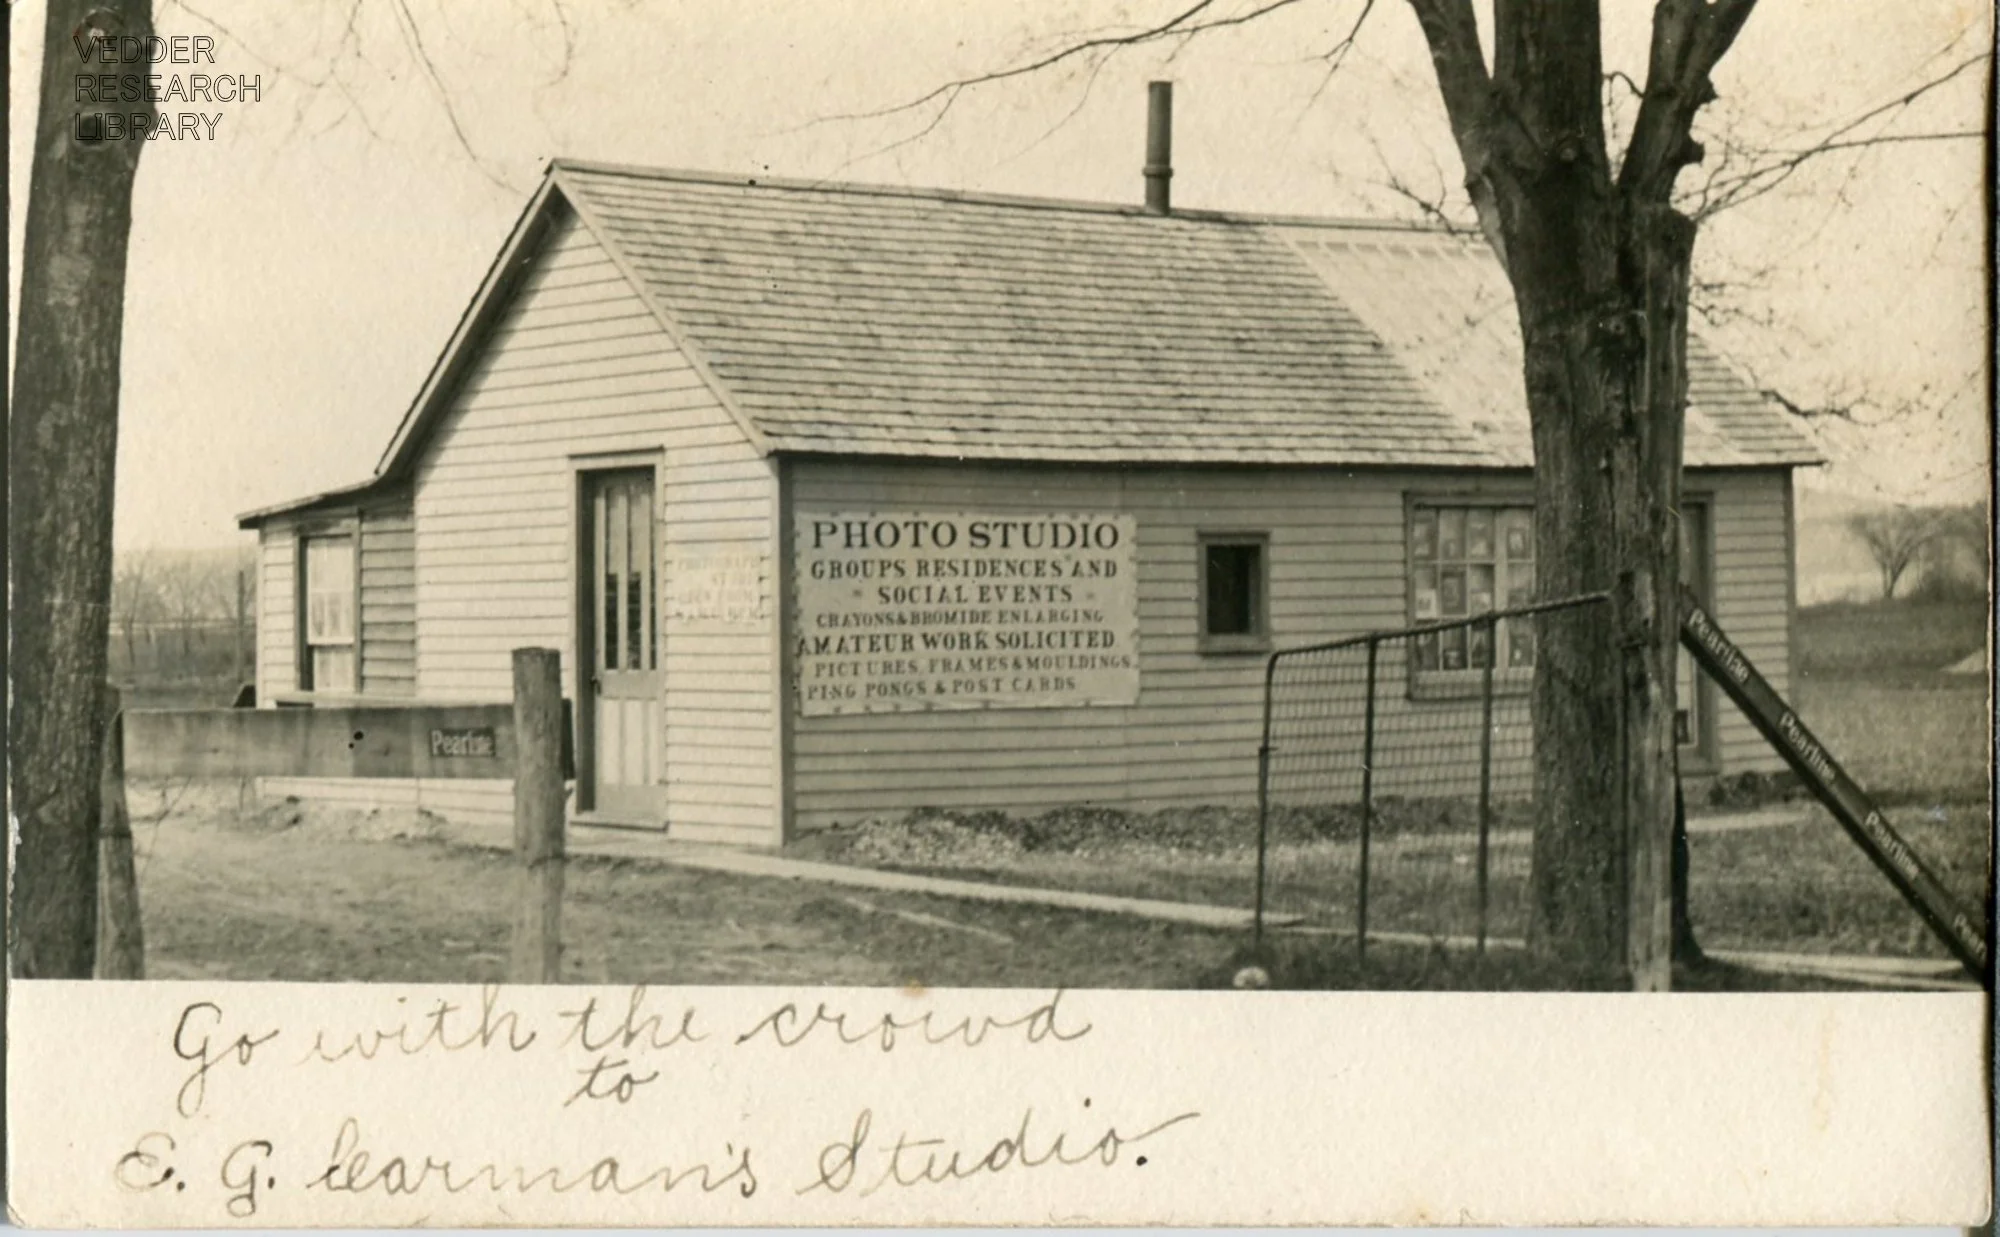 VEDDER
RESEARCH
LIBRARY
PHOTO STUDIO
GROUPS RESIDENCES AND
SOCIAL EVENTS
CRAYONS & BROMIDE ENLARGING
AMATEUR WORK SOLICITED
PICTURES, FRAMES & MOULDINGS
PING PONGS & POST CARDS
Pearline
Pearline
Pearline
Pearline
Go with the crowd
to
E. G. Carman's Studio.